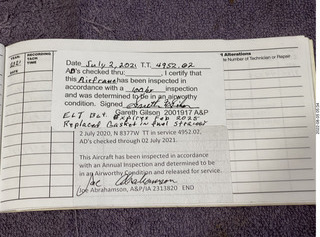 YEAR
2021
DATE
RECORDING
TACH
TIME
Alterations
Number of Technician or Repair
Date July 2, 2021 T.T. 4952.02
AD's checked thru: , I certify that
this Airframe has been inspected in
accordance with a 100hr inspection
and was determined to be in an airworthy
condition. Signed Gareth Gilson
Gareth Gilson 2001917 A&P
ELT Bat. Expires Feb 2025
Replaced Gasket in fuel strainer
2 July 2020, N 8377W TT in service 4952.02,
AD's checked through 02 July 2021.
This Aircraft has been inspected in accordance
with an Annual Inspection and determined to be
in an Airworthy Condition and released for service.
Joe Abrahamson
Joe Abrahamson, A&P/IA 2313820 ENO